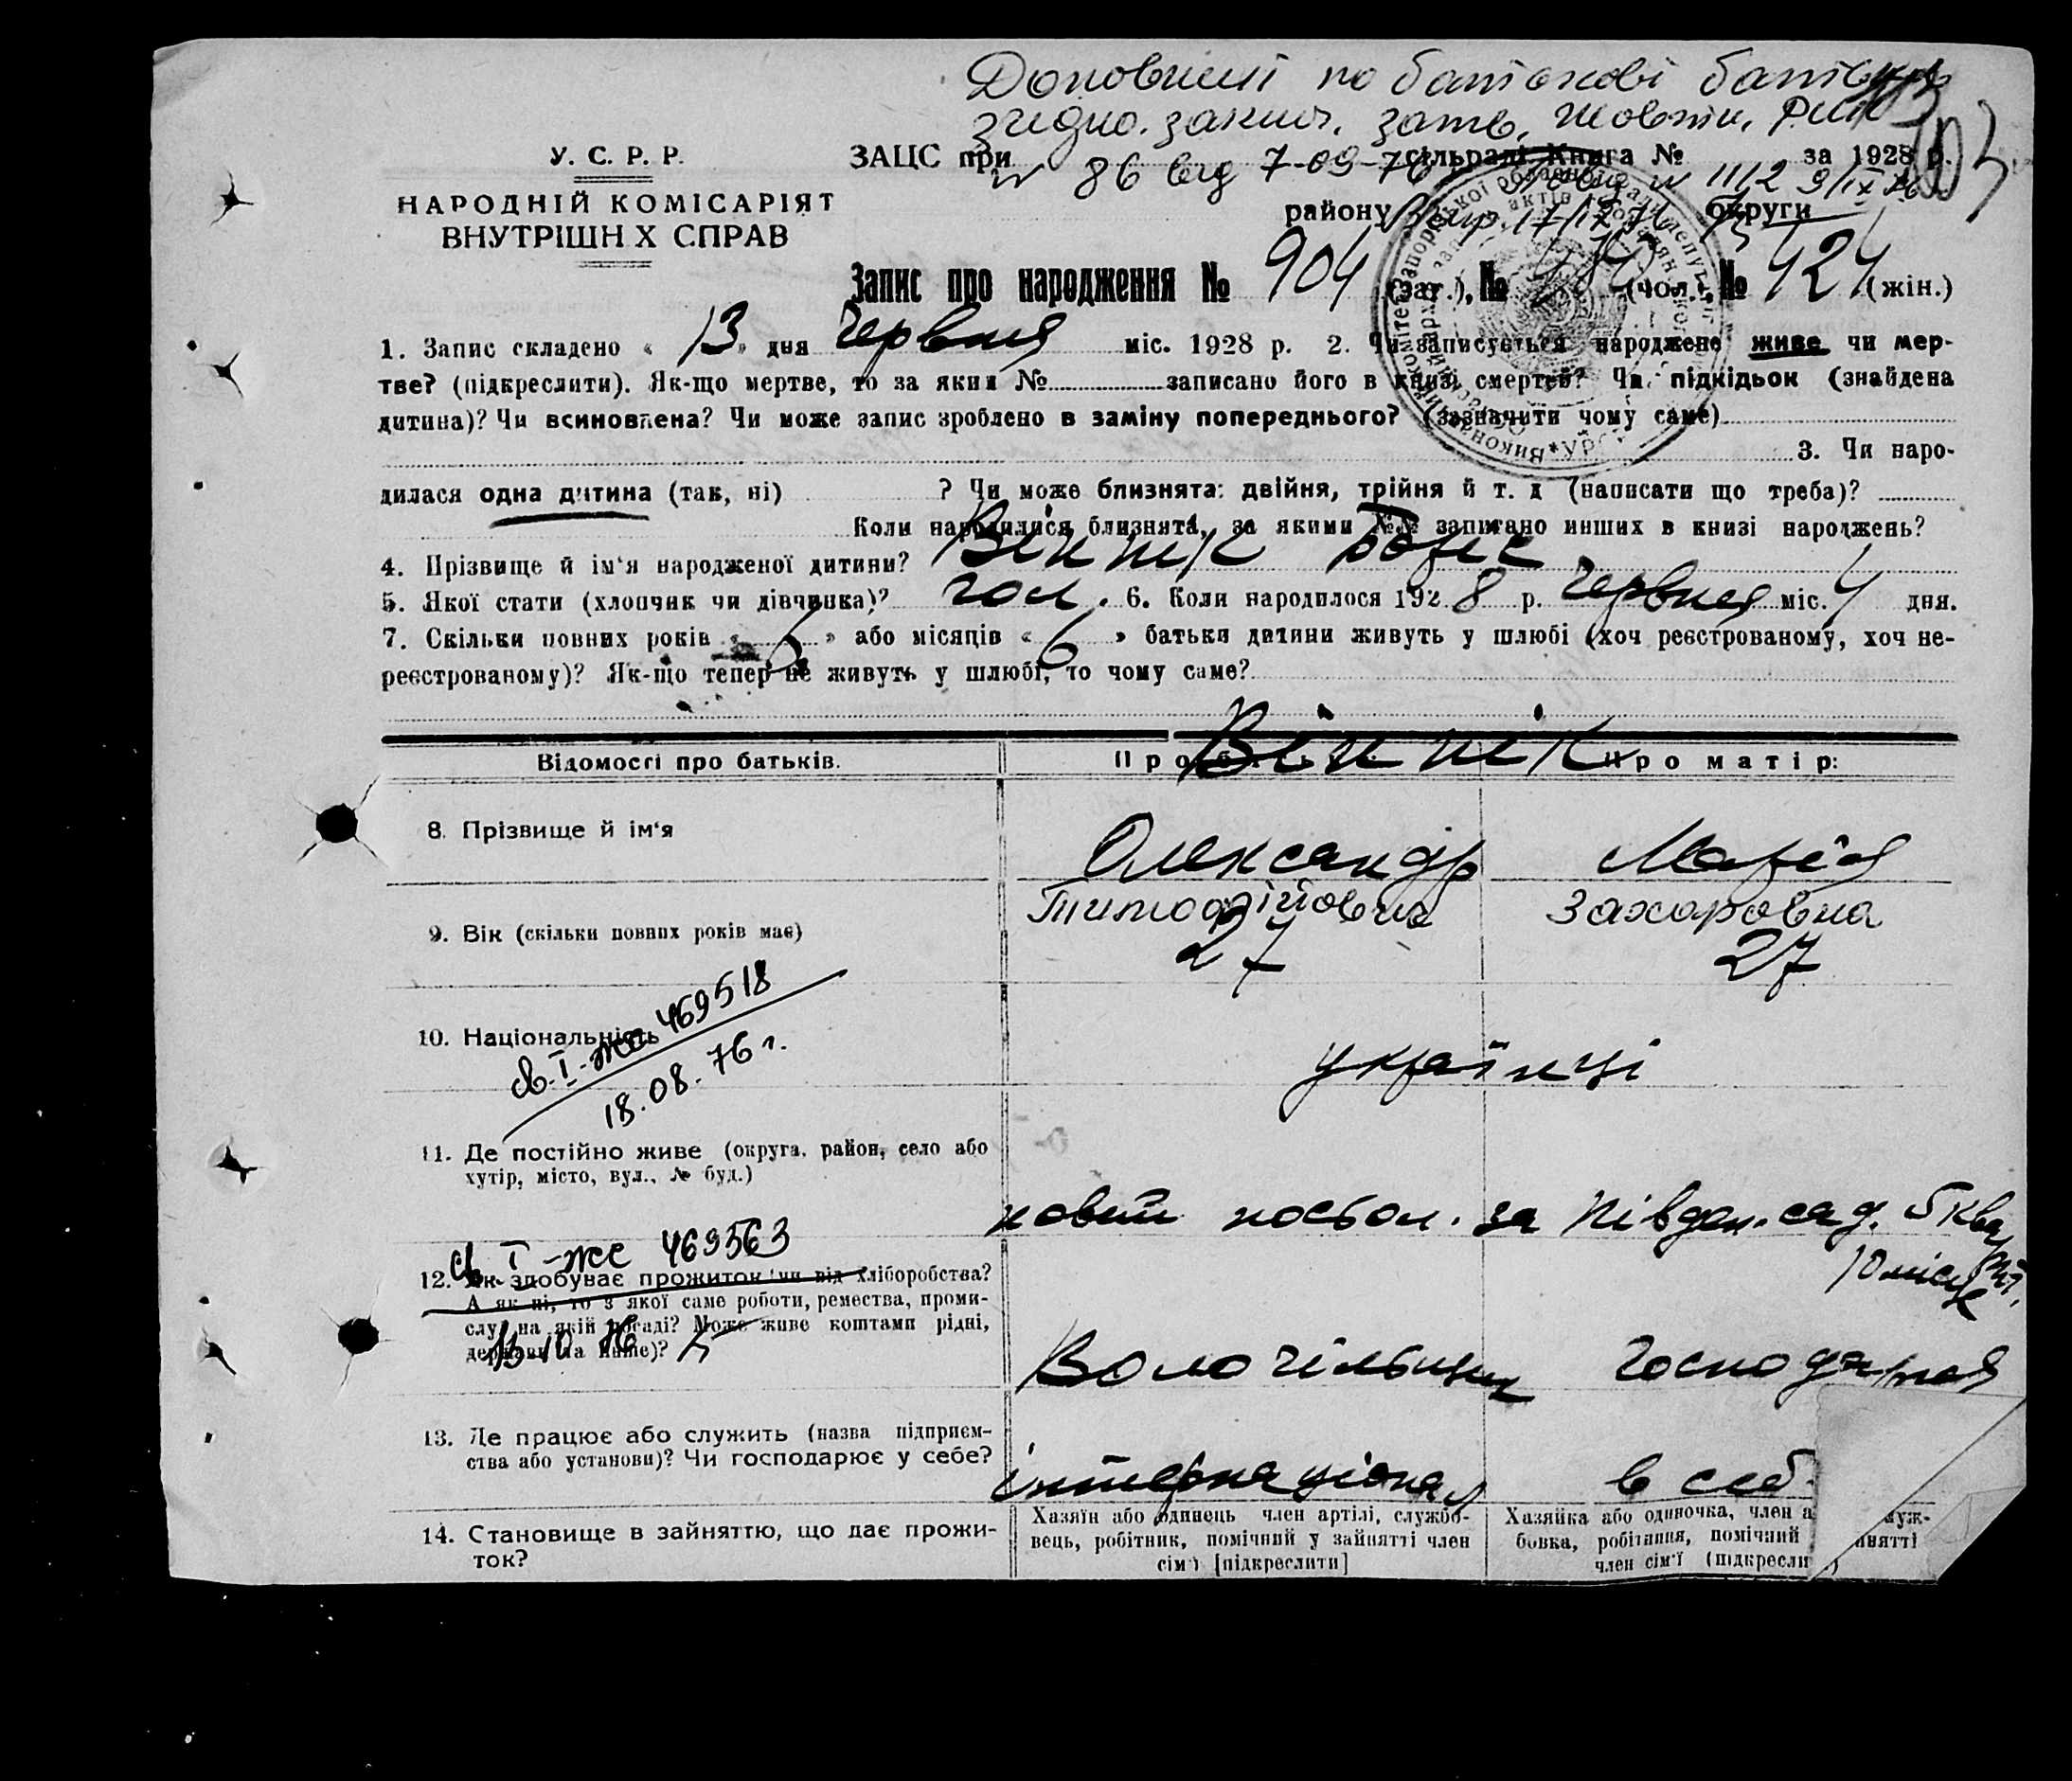 Доповнині по батькові батьків
згідно. заключ. затв. Жовтн. РИК
У. С. Р. Р.
НАРОДНІЙ КОМІСАРІЯТ
ВНУТРІШН Х СПРАВ
ЗАЦС при сільраді Книга № за 1928 р.
№ 86 від 7-09-76 № 1112 9/IX 76
району округи
Запис про народження № 904 (заг.), № 480 (чол.), № 424 (жін.)
1. Запис складено « 13 » дня червня міс. 1928 р. 2. Чи записується народжене живе чи мер-
тве? (підкреслити). Як-що мертве, то за яким № записано його в книзі смертей? Чи підкідьок (знайдена
дитина)? Чи всиновлена? Чи може запис зроблено в заміну попереднього? (зазначити чому саме)
3. Чи наро-
дилася одна дитина (так, ні) ? Чи може близнята: двійня, трійня й т. д (написати що треба)?
Коли народилися близнята, за якими №№ записано инших в книзі народжень?
4. Прізвище й ім'я народженої дитини? Віннік Боріс
5. Якої стати (хлопчик чи дівчинка)? чол. 6. Коли народилося 1928 р. червня міс. 4 дня.
7. Скільки повних років « 5 » або місяців « 6 » батьки дитини живуть у шлюбі (хоч реєстрованому, хоч не-
реєстрованому)? Як-що тепер не живуть у шлюбі, то чому саме?
Відомості про батьків. Про Про матір:
Віннік
8. Прізвище й ім'я Олександр Марія
Тимофійович Захаровна
9. Вік (скільки повних років має) 27 27
10. Національність українці
св. I-ЖС 469518
18.08.76 г.
11. Де постійно живе (округа, район, село або
хутір, місто, вул., № буд.)
новий посьол. за півден. сад. 5 кварт.
10 місце
св I-ЖС 469563
12. Як здобуває прожиток чи від хліборобства?
А як ні, то з якої саме роботи, ремества, проми-
слу на якій посаді? Може живе коштами рідні,
держави та инше)?
13.10 76
Волочільщик господарка
13. Де працює або служить (назва підприєм-
ства або установи)? Чи господарює у себе?
інтернаціонал в себ.
14. Становище в зайняттю, що дає прожи-
ток?
Хазяїн або одинець член артілі, службо-
вець, робітник, помічний у зайнятті член
сім'ї [підкреслити]
Хазяйка або одиночка, член а луж-
бовка, робітниця, помічний йнятті
член сім'ї (підкресли )